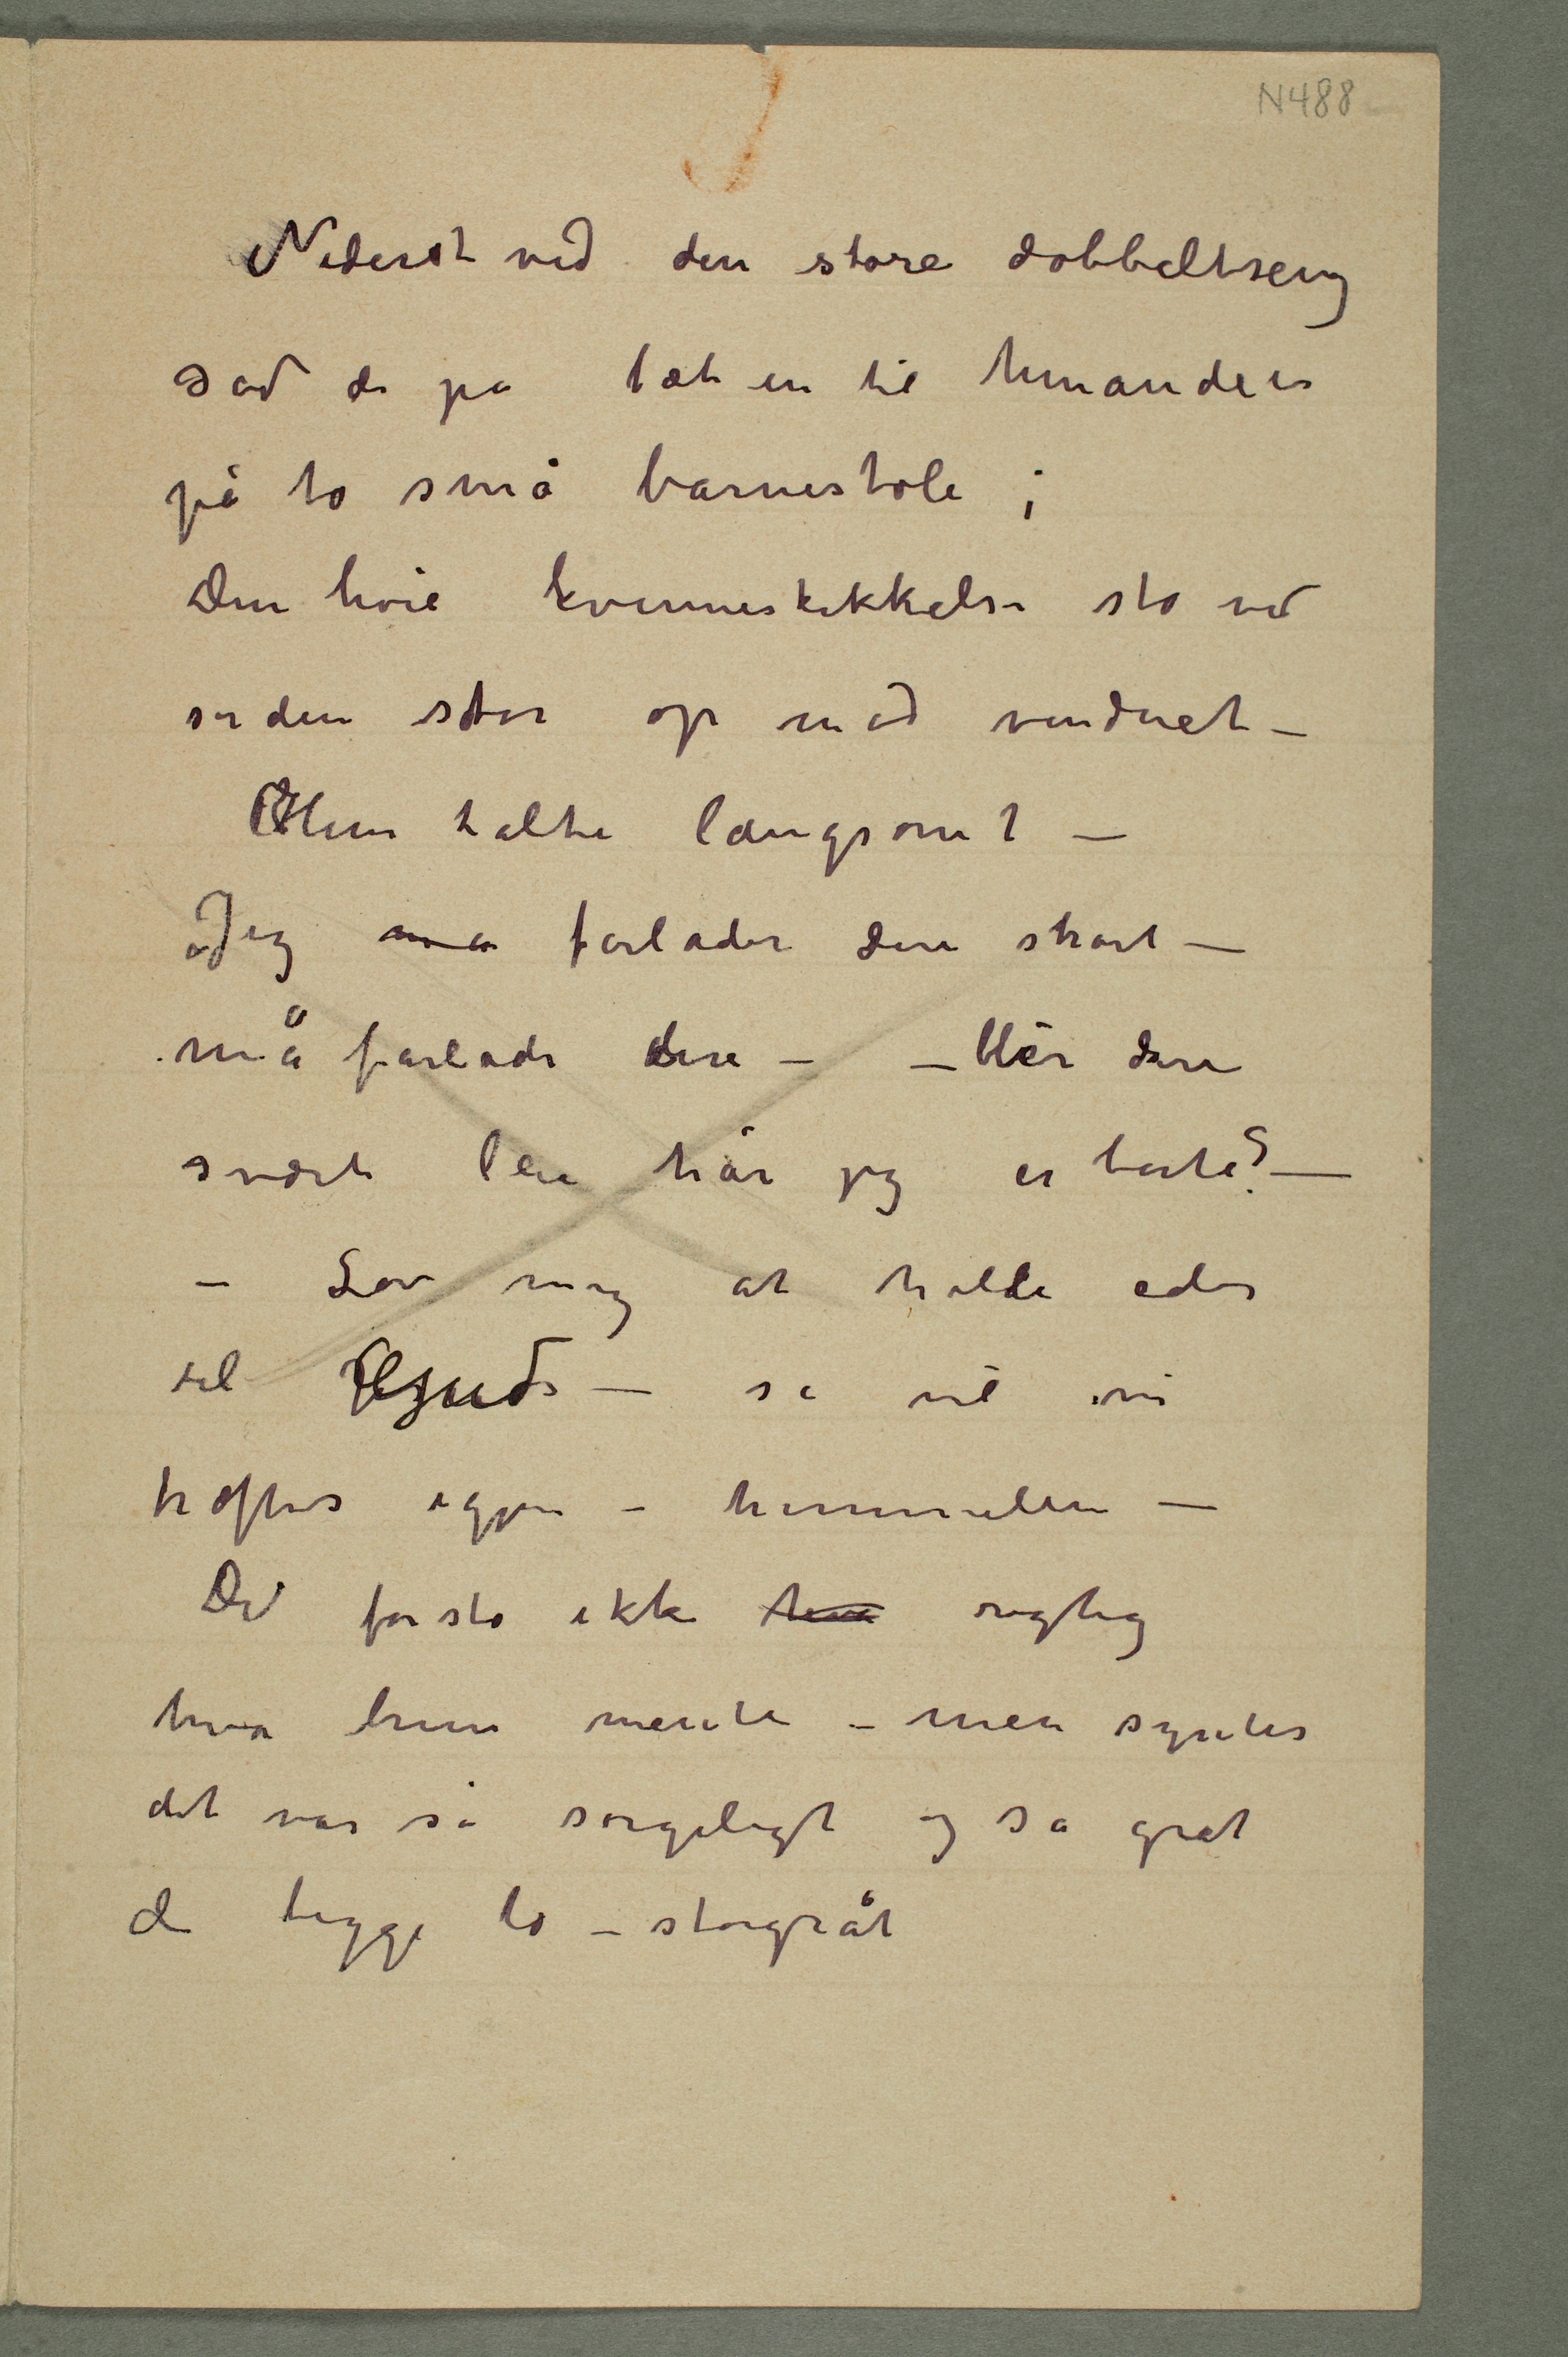 N488
Nederst ved den store dobbeltseng
sad de på tæt en til hinanden
på to små barnestole ;
Den høie kvinneskikkelse sto ved
siden stor op mod vinduet –
Hun talte langsomt –
Jeg må forlader dere snart –
må forlade dere – – Blir dere
svært lei når jeg er borte? –
– Lov mig at holde eder
til Jesus – så vil vi
træffes igjen – himmelen –
De forsto ikke hva rigtig
hva hun mente – men syntes
det var så sørgeligt og så gråt
de begge to – storgråt